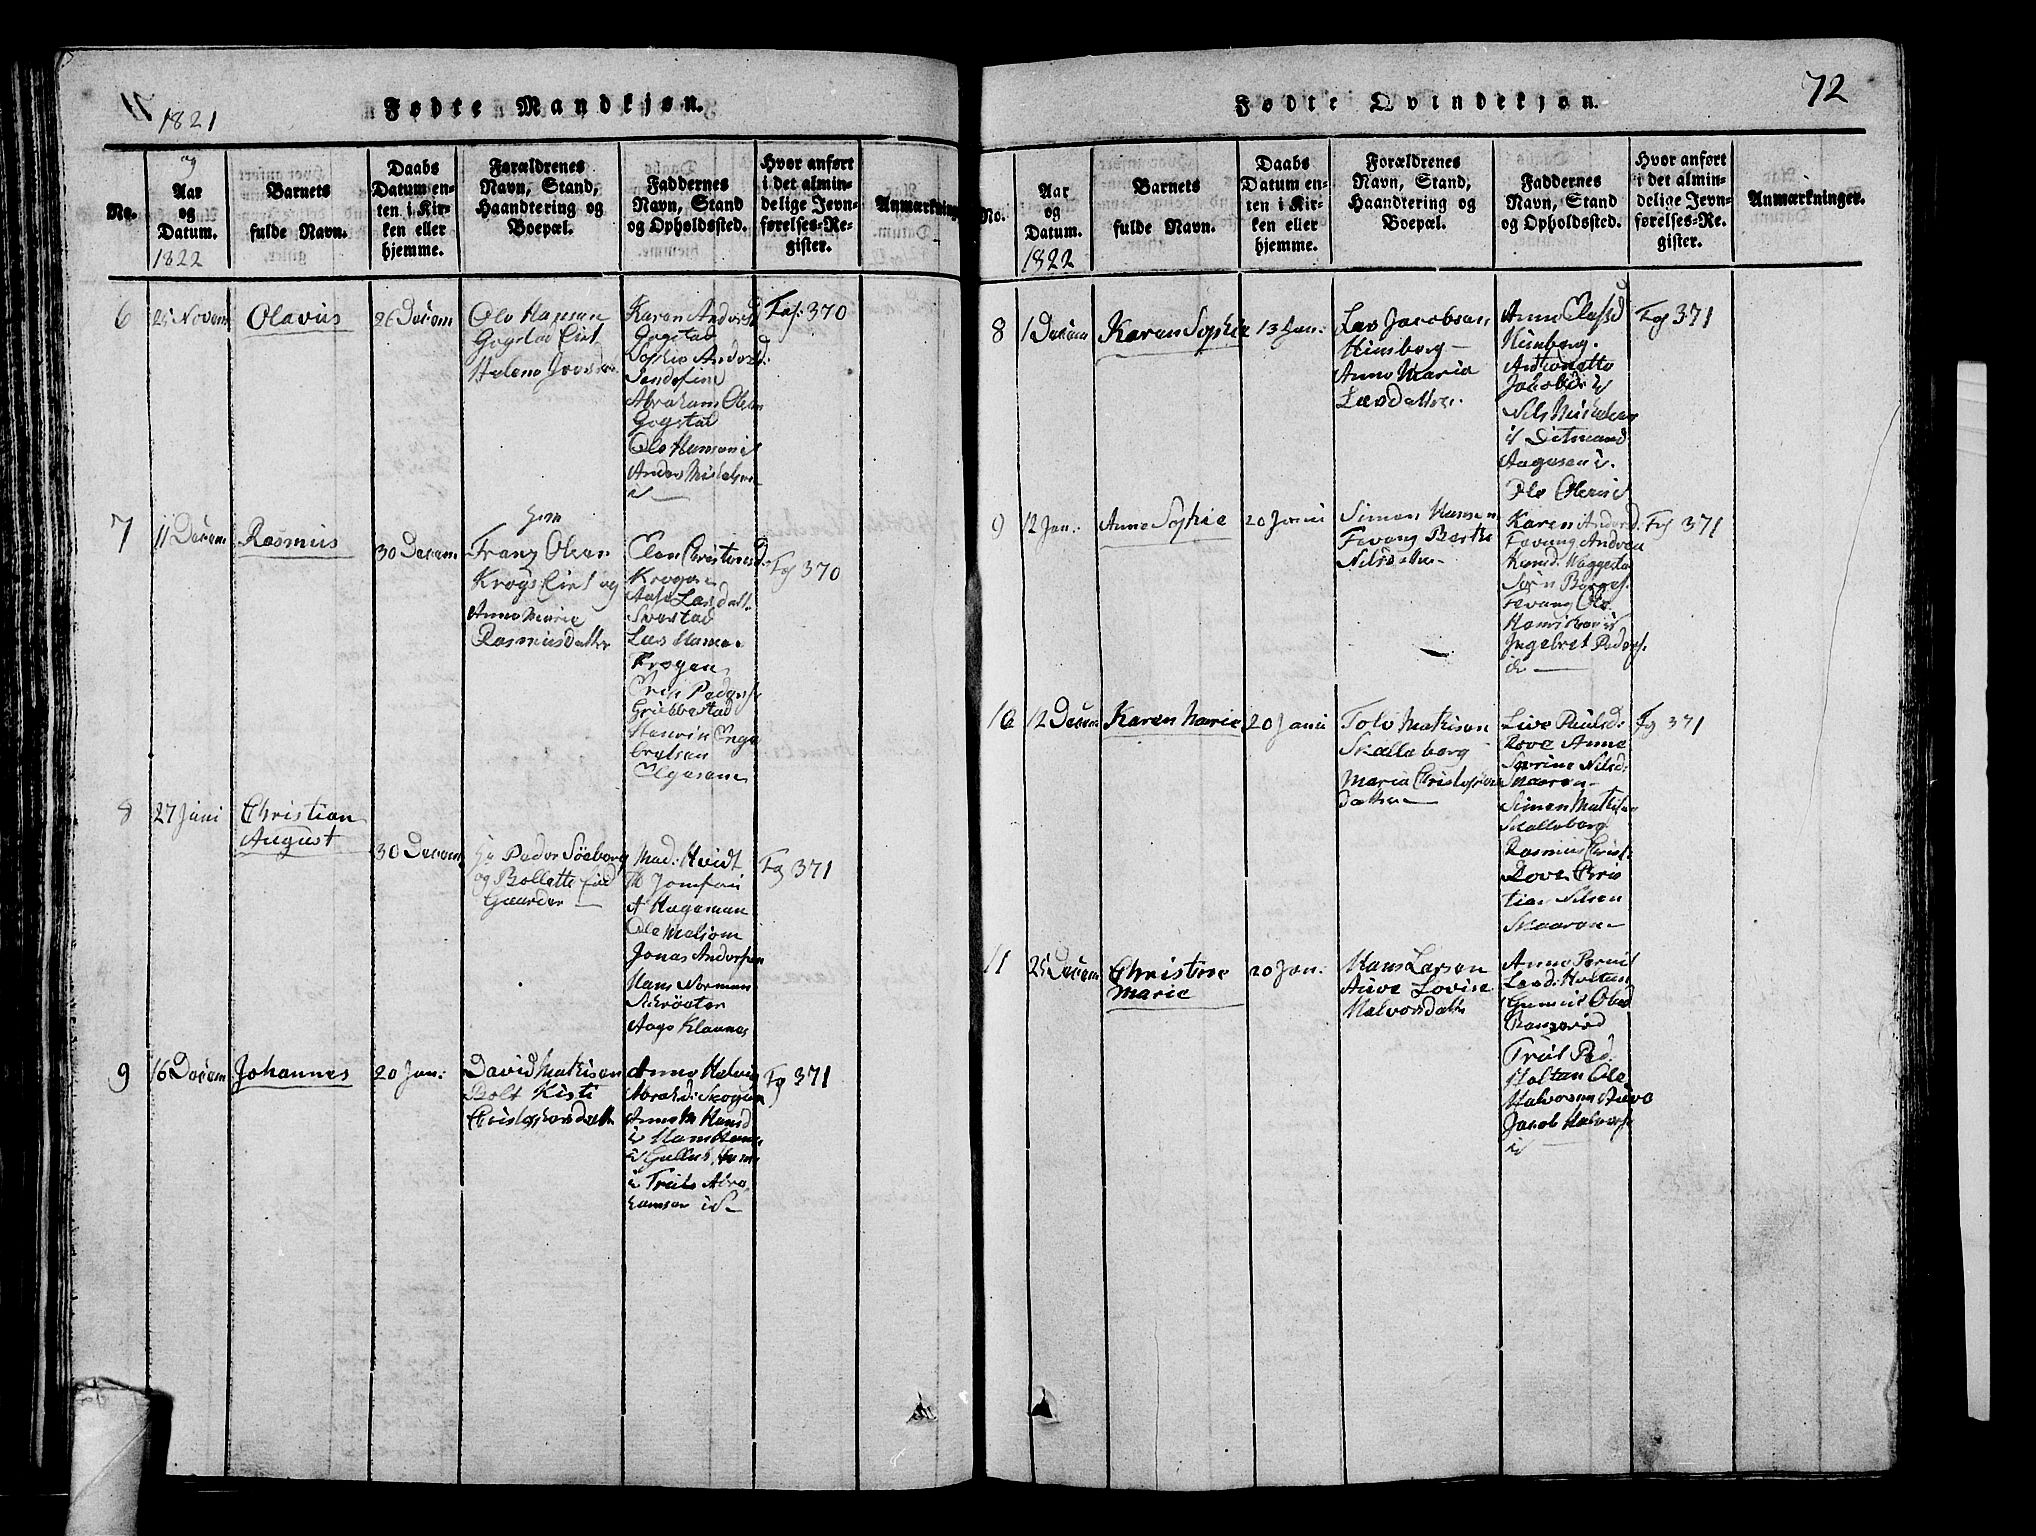 1821
Fødte Mandkjøn.
og
No.
Aar
og
Datum.
1822
Barnets
fulde Navn.
Daabs
Datum en-
ten i Kir-
ken eller
hjemme.
Forældrenes
Navn, Stand,
Haandtering og
Boepæl.
Faddernes
Navn, Stand
og Opholdssted.
Hvor anført
i det almin-
delige Jevn-
førelses-Re-
gister.
Anmærkning
6
25 Novem
Olavus
26 Decem
Ole Hansen
Gogstad Eie
Helene
Karen Anders
Gogstad
Sophie Anders
Sandefiu
Abraham Olsen
Gogstad
Ole Hansen i
Anders Mickelsen
id
Fol: 370
7
11 Decem
Rasmus
30 Decem
Franz Olsen
Krogs Eie og
Anne Marie
Rasmusdatter
Elen Christensd
Krogen
Larsdatt.
Lars Hansen
Krogen
Peders
Gribbestad
Enge
bretsen
Elgesem
Fg 370
8
27 Juni
Christian
August
30 Decem
Hr Peder Søeberg
og Bollette
Gaarder
Mad: Hvidt
Jomfru
Hageman
Ole Meliom
Jonas Andersen
Hans Norman
Schrøeter
Aage Klavnes
Fg 371
9
16 Decem
Johannes
20 Jan:
David Mathisen
Bolt Kisti
Christophersdatt
Anne Helvig
Abrahd: Skogen
Anne M Hansd
i Hans Hans
i Gullik
i Truls Abra
hamsen id
Fg 371
72
Fødte Qvindekjøn.
No.
Aar
og
Datum.
1822
Barnets
fulde Navn.
Daabs
Datum en-
ten i Kir-
ken eller
hjemme.
Forældrenes
Navn, Stand,
Haandtering og
Boepæl.
Faddernes
Navn, Stand
og Opholdssted.
Hvor anført
i det almin-
delige Jevn-
førelses-Re-
gister.
Anmærkninger.
8
1 Decem
Karen Sophie
13 Jan:
Lars Jacobsen
Himberg
Anne Maria
Larsdatter
Anne Olafsd
Himberg.
Antonette
Jakobs i
Nils Mickelsen
id Ditmand
Aagesen i.
Ole Olsen id
Fg 371
9
12 Jan:
Anne Sophie
20 Janii
Simen Hansen
Fevang Berthe
Nilsdatter
Karen Anders:
Fevang Andrea
Hansd: Waggestad
Sørn Børges.
Fevang Ole
Ingebret Peders.
id
Fg 371
10
12 Decem
Karen Marie
20 Janii
Tolv Mathisen
Skalleberg
Maria Christophers
datter
Live Paulsd:
Rove Anne
Serine Nilsd:
Skaaren
Simen Mathisen
Skalleberg
Rasmus Christ:
Rove Chris
tian Nilsen
Skaaran
Fg 371
11
25 Decem
Christine
Marie
20 Jan:
Hans Larsen
Auve Lovise
Halvorsdatt
Anne
Larsd: Holtan
Gunild Olsd
Ramserød
Truls Ped:
Holtan Ole
Halvorsen Auve
Jacob Halvors
id